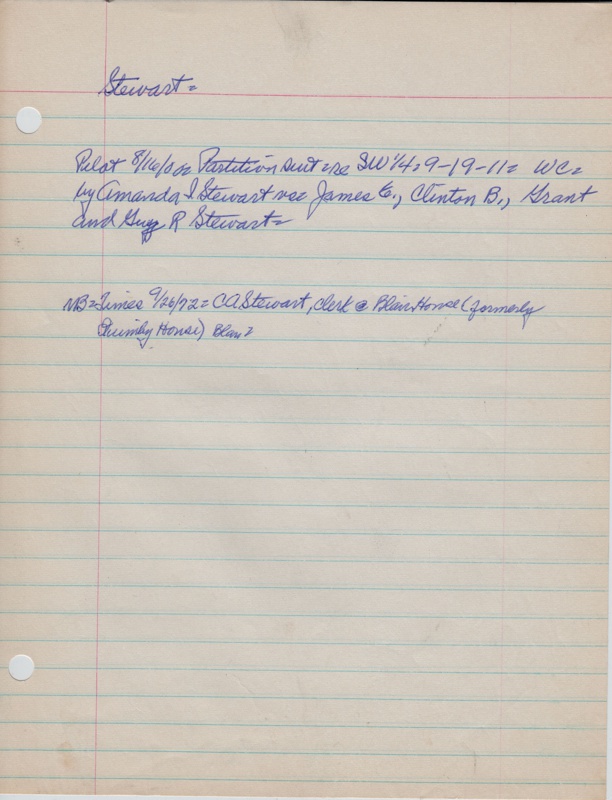 Stewart=
Pilot 8/16/00= Partition suit=re SW 1/4=9-19-11= WC=
by Amanda I Stewart vs= James E., Clinton B., Grant
and Guy R Stewart=
=Times 9/26/72= CA Stewart, clerk @ Blair House (formerly
Quimby House) Blair=